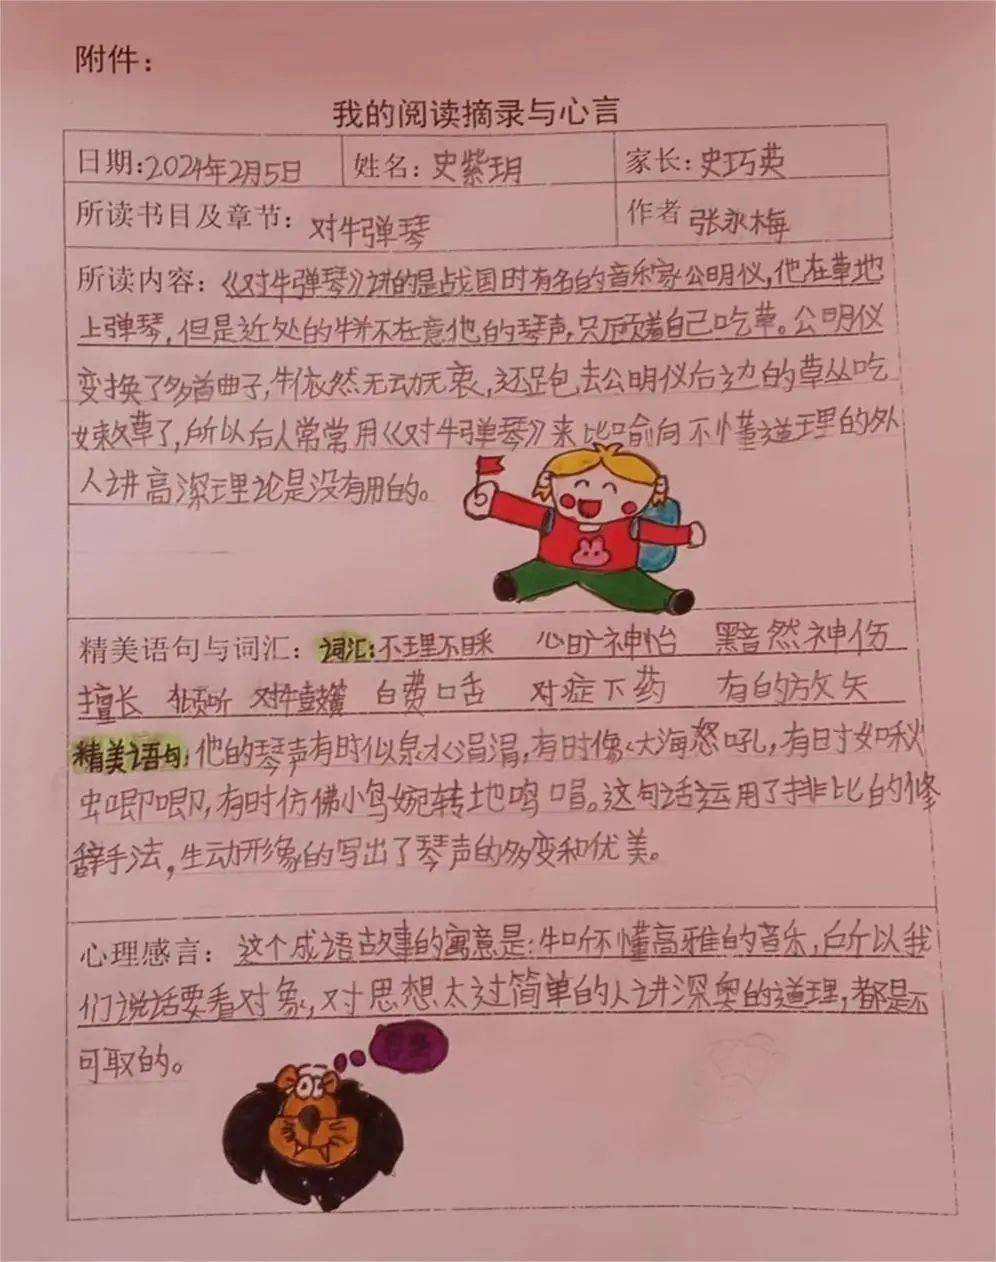 附件：
我的阅读摘录与心言
日期:2024年2月5日 姓名: 史紫玥 家长: 史巧英
所读书目及章节: 对牛弹琴 作者 张永梅
所读内容:《对牛弹琴》讲的是战国时有名的音乐家公明仪,他在草地
上弹琴,但是近处的牛并不在意他的琴声,只顾着自己吃草。公明仪
变换了多首曲子,牛依然无动无衷,还跑去公明仪后边的草丛吃
嫩草了,所以后人常常用《对牛弹琴》来比喻向不懂道理的外
人讲高深理论是没有用的。
精美语句与词汇: 词汇:不理不睬 心旷神怡 黯然神伤
擅长 倾听 对牛鼓簧 白费口舌 对症下药 有的放矢
精美语句:他的琴声有时似泉水涓涓,有时像大海怒吼,有时如秋
虫唧唧,有时仿佛小鸟婉转地鸣唱。这句话运用了排比的修
辞手法,生动形象的写出了琴声的多变和优美。
心理感言: 这个成语故事的寓意是:牛听不懂高雅的音乐,所以我
们说话要看对象,对思想太过简单的人讲深奥的道理,都是不
可取的。